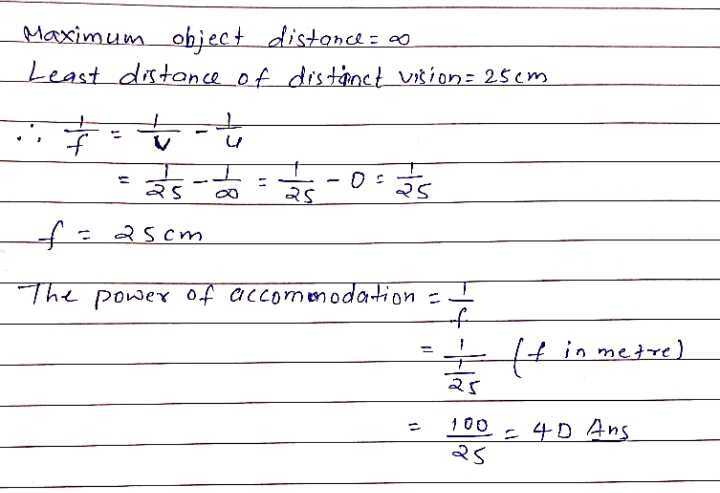 Maximum object distance = ∞
Least distance of distinct vision = 25cm
∴ 1/f = 1/v - 1/u
= 1/25 - 1/∞ = 1/25 - 0 = 1/25
f = 25cm
The power of accommodation = 1/f
= 1/(1/25) (f in metre)
= 100/25 = 4D Ans